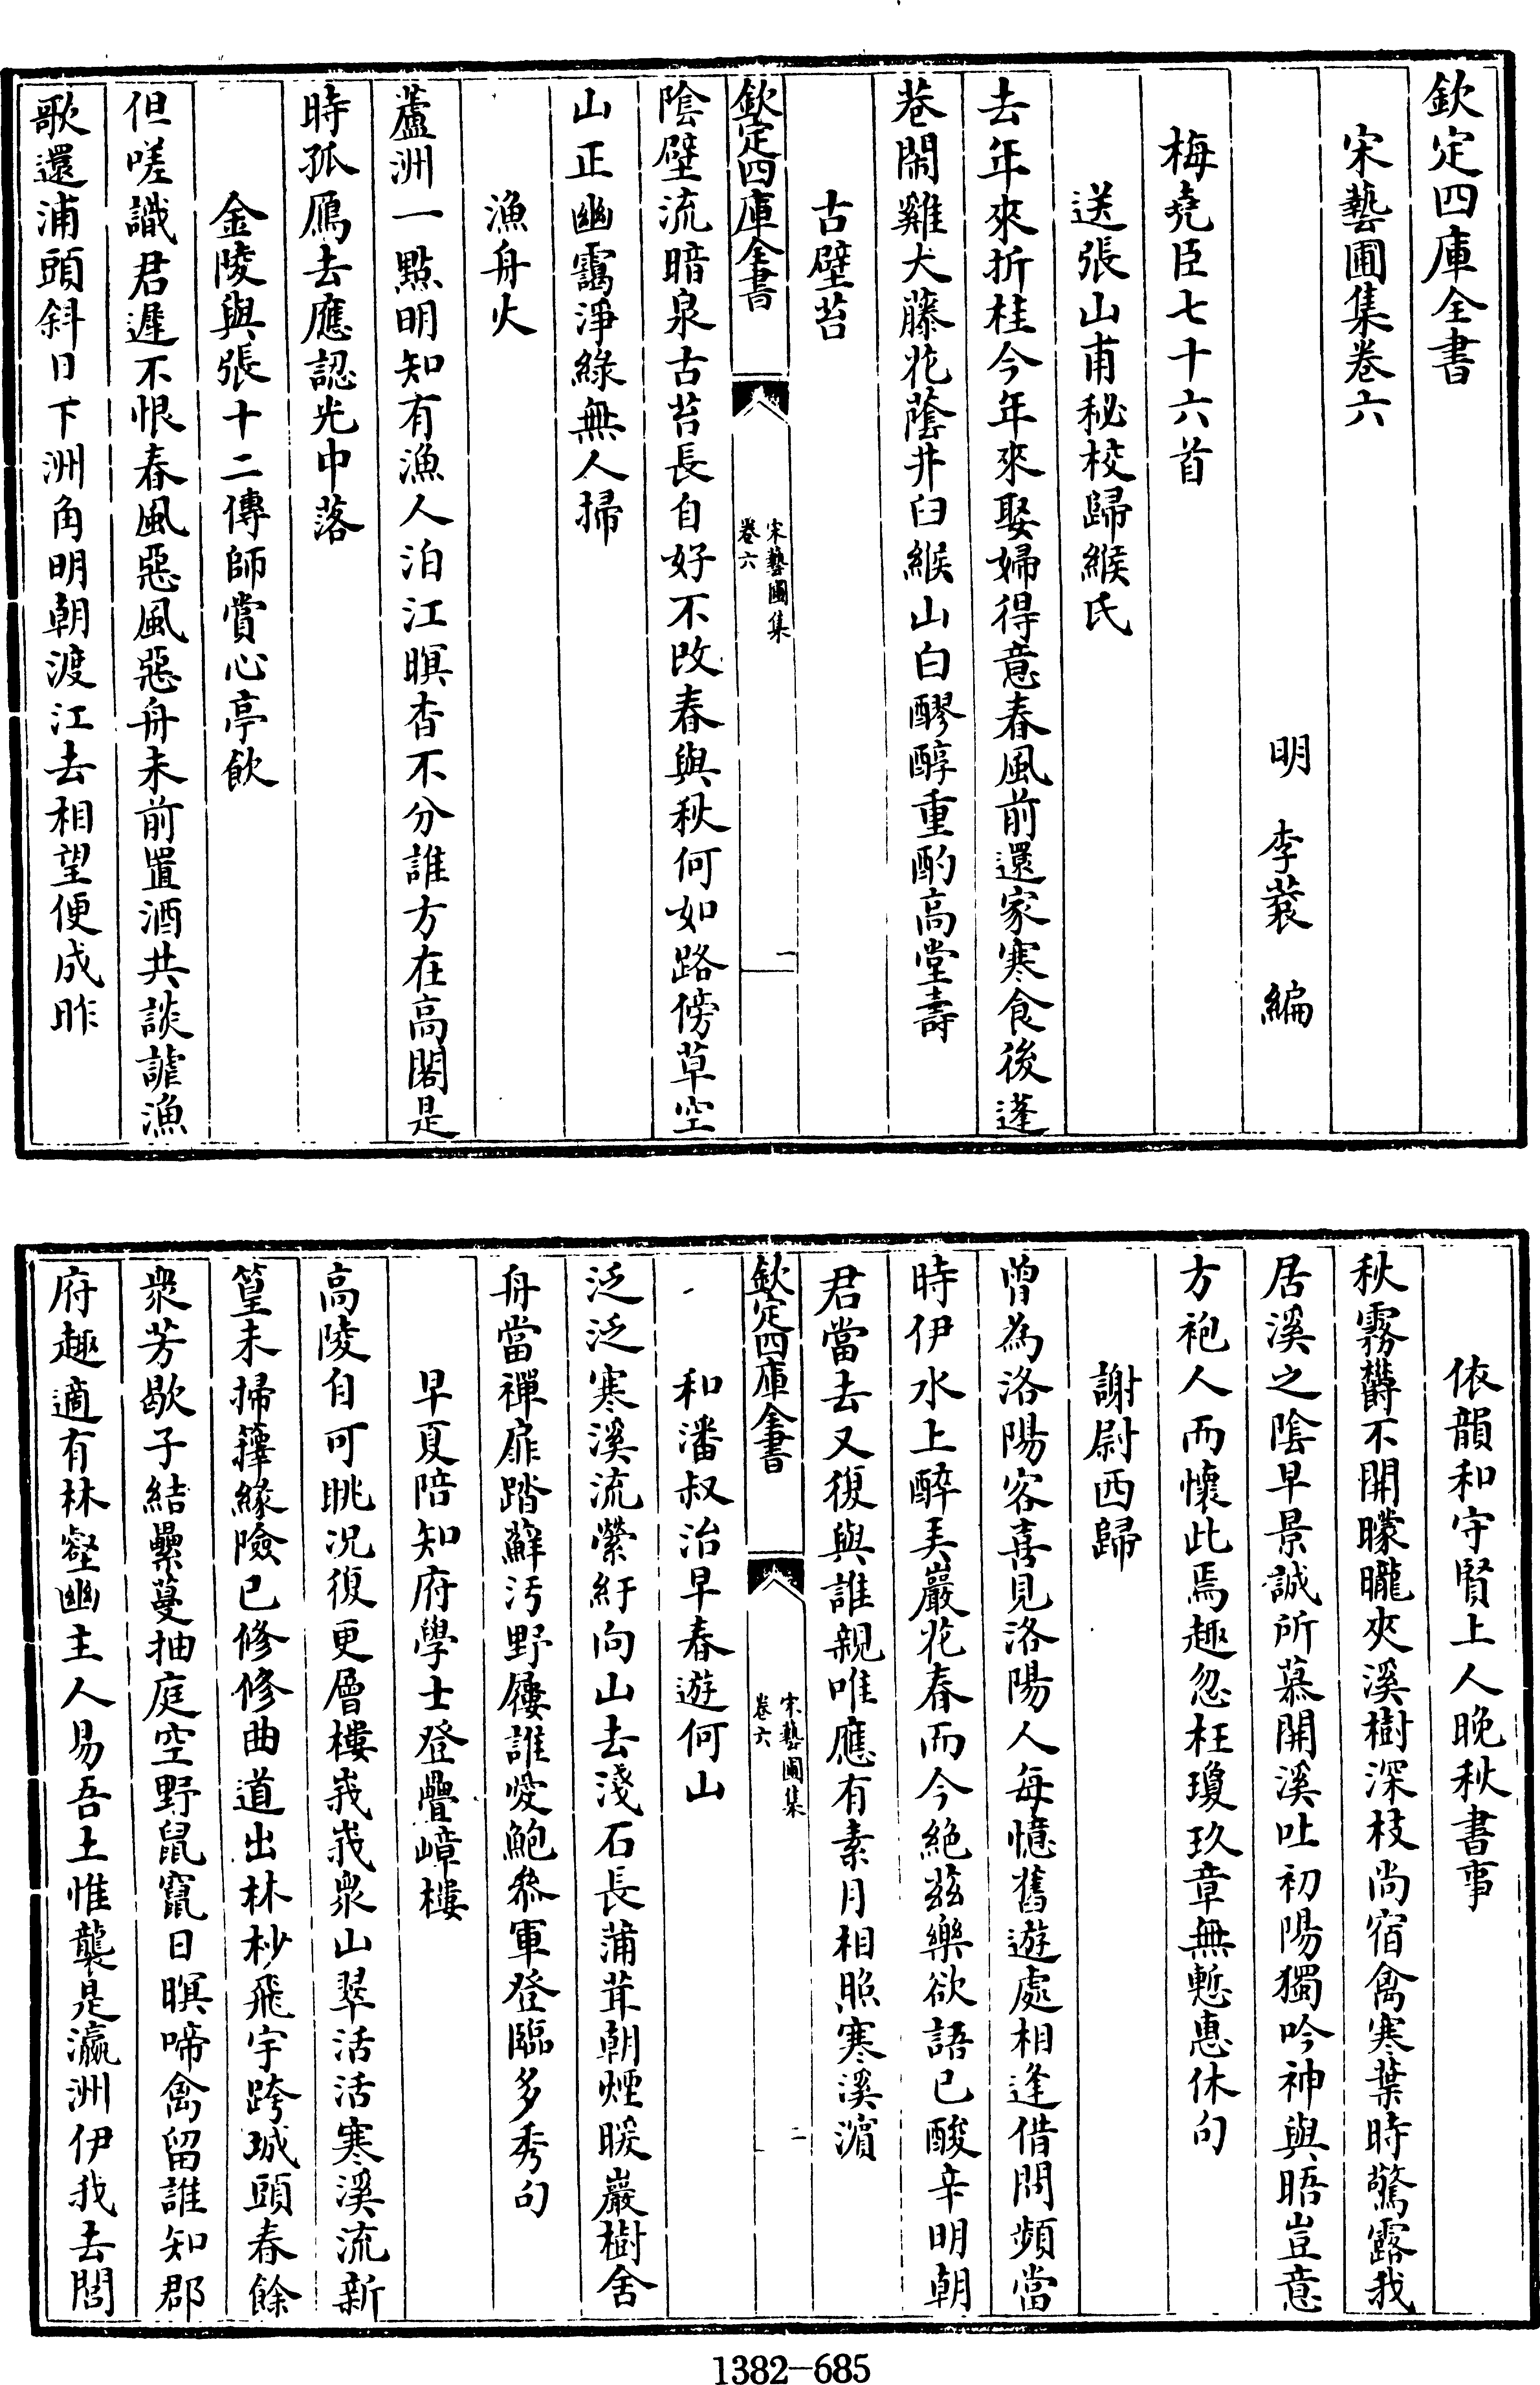 欽定四庫全書
宋藝圃集卷六
明 李蓘 編
梅堯臣七十六首
送張山甫秘校歸緱氏
去年來折桂今年來娶婦得意春風前還家寒食後蓬
巷閑雞犬藤花蔭井臼緱山白醪醇重酌高堂壽
古壁苔
欽定四庫全書
宋藝圃集
卷六
一
陰壁流暗泉古苔長自好不改春與秋何如路傍草空
山正幽靄淨綠無人掃
漁舟火
蘆洲一點明知有漁人泊江暝杳不分誰方在高閣是
時孤鴈去應認光中落
金陵與張十二傳師賞心亭飲
但嗟識君遲不恨春風惡風惡舟未前置酒共談謔漁
歌還浦頭斜日下洲角明朝渡江去相望便成昨
依韻和守賢上人晚秋書事
秋霧鬱不開曚曨夾溪樹深枝尚宿禽寒葉時驚露我
居溪之陰早景誠所慕開溪吐初陽獨吟神與晤豈意
方袍人而懷此焉趣忽枉瓊玖章無慙惠休句
謝尉西歸
曾為洛陽客喜見洛陽人每憶舊遊處相逢借問頻當
時伊水上醉弄巖花春而今絶兹樂欲語已酸辛明朝
君當去又復與誰親唯應有素月相照寒溪濵
欽定四庫全書
宋藝圃集
卷六
二
和潘叔治早春遊何山
泛泛寒溪流縈紆向山去淺石長蒲茸朝煙暖巖樹舍
舟當禪扉踏蘚汚野屨誰愛鮑叅軍登臨多秀句
早夏陪知府學士登疊嶂樓
高陵自可眺况復更層樓峩峩衆山翠活活寒溪流新
篁未掃籜緣險已修修曲道出林杪飛宇跨城頭春餘
衆芳歇子結纍蔓抽庭空野鼠竄日暝啼禽留誰知郡
府趣適有林壑幽主人易吾土惟襲是瀛洲伊我去閤
1382-685